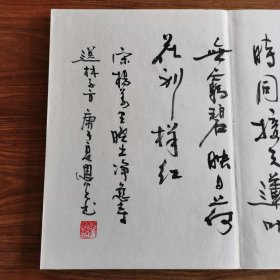 時同接天蓮叶
無窮碧映日荷
花别样红
宋楊萬里曉出净慈寺
送林子方庚子夏